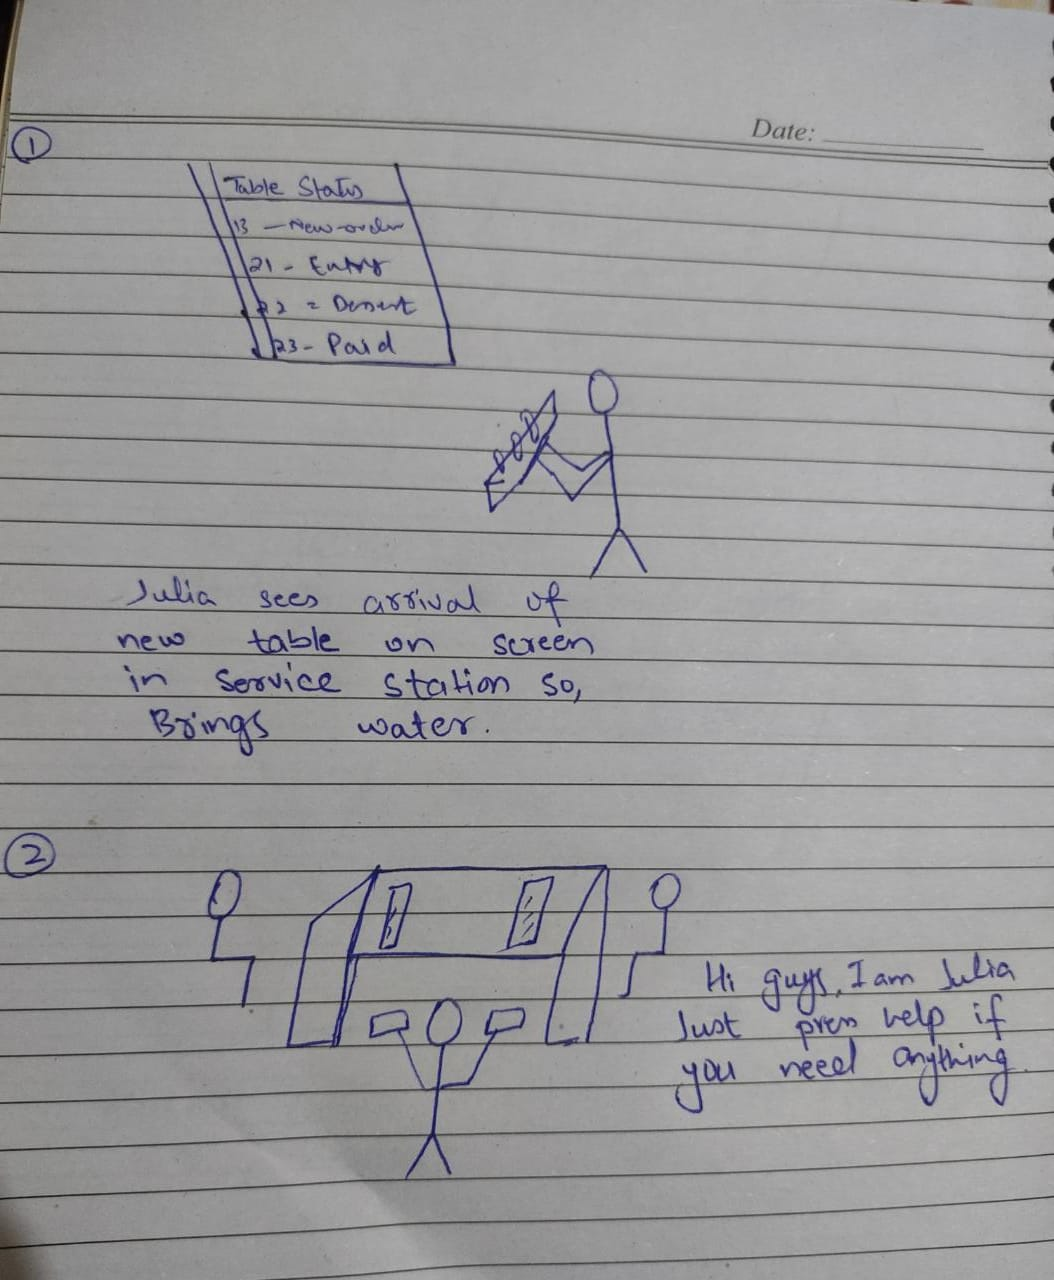 Date:
1
Table Status
13 - New order
21 - Entry
22 = Desert
23 - Paid
Julia sees arrival of
new table on screen
in Service station so,
Brings water.
2
Hi guys, I am Julia
Just press help if
you need anything.